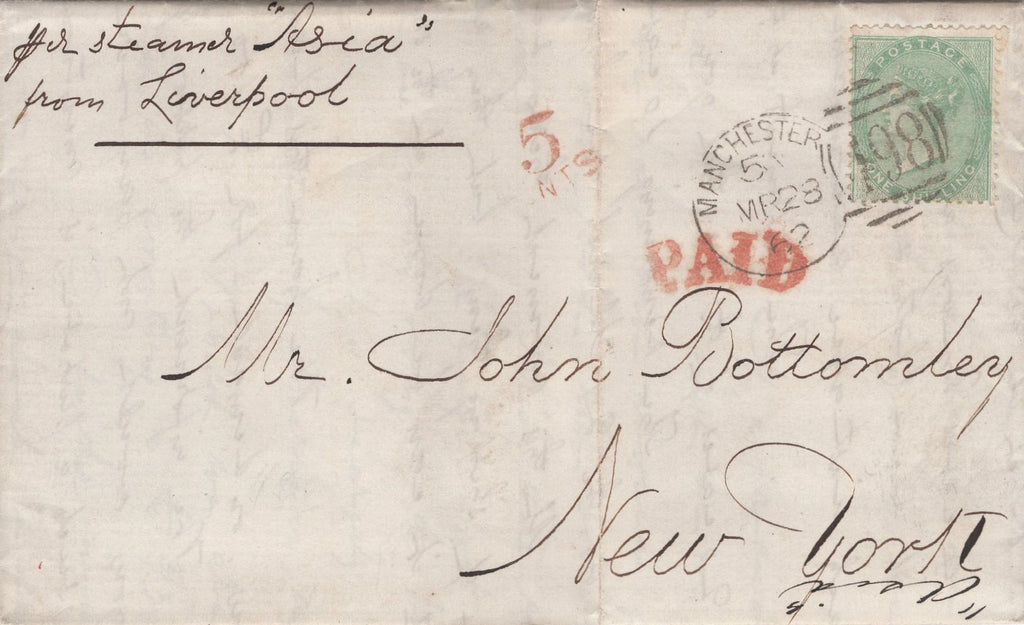 per steamer "Asia"
from Liverpool
5
NTS
POSTAGE
ONE SHILLING
498
MANCHESTER
MR 28
62
PAID
Mr. John Bottomley
New York